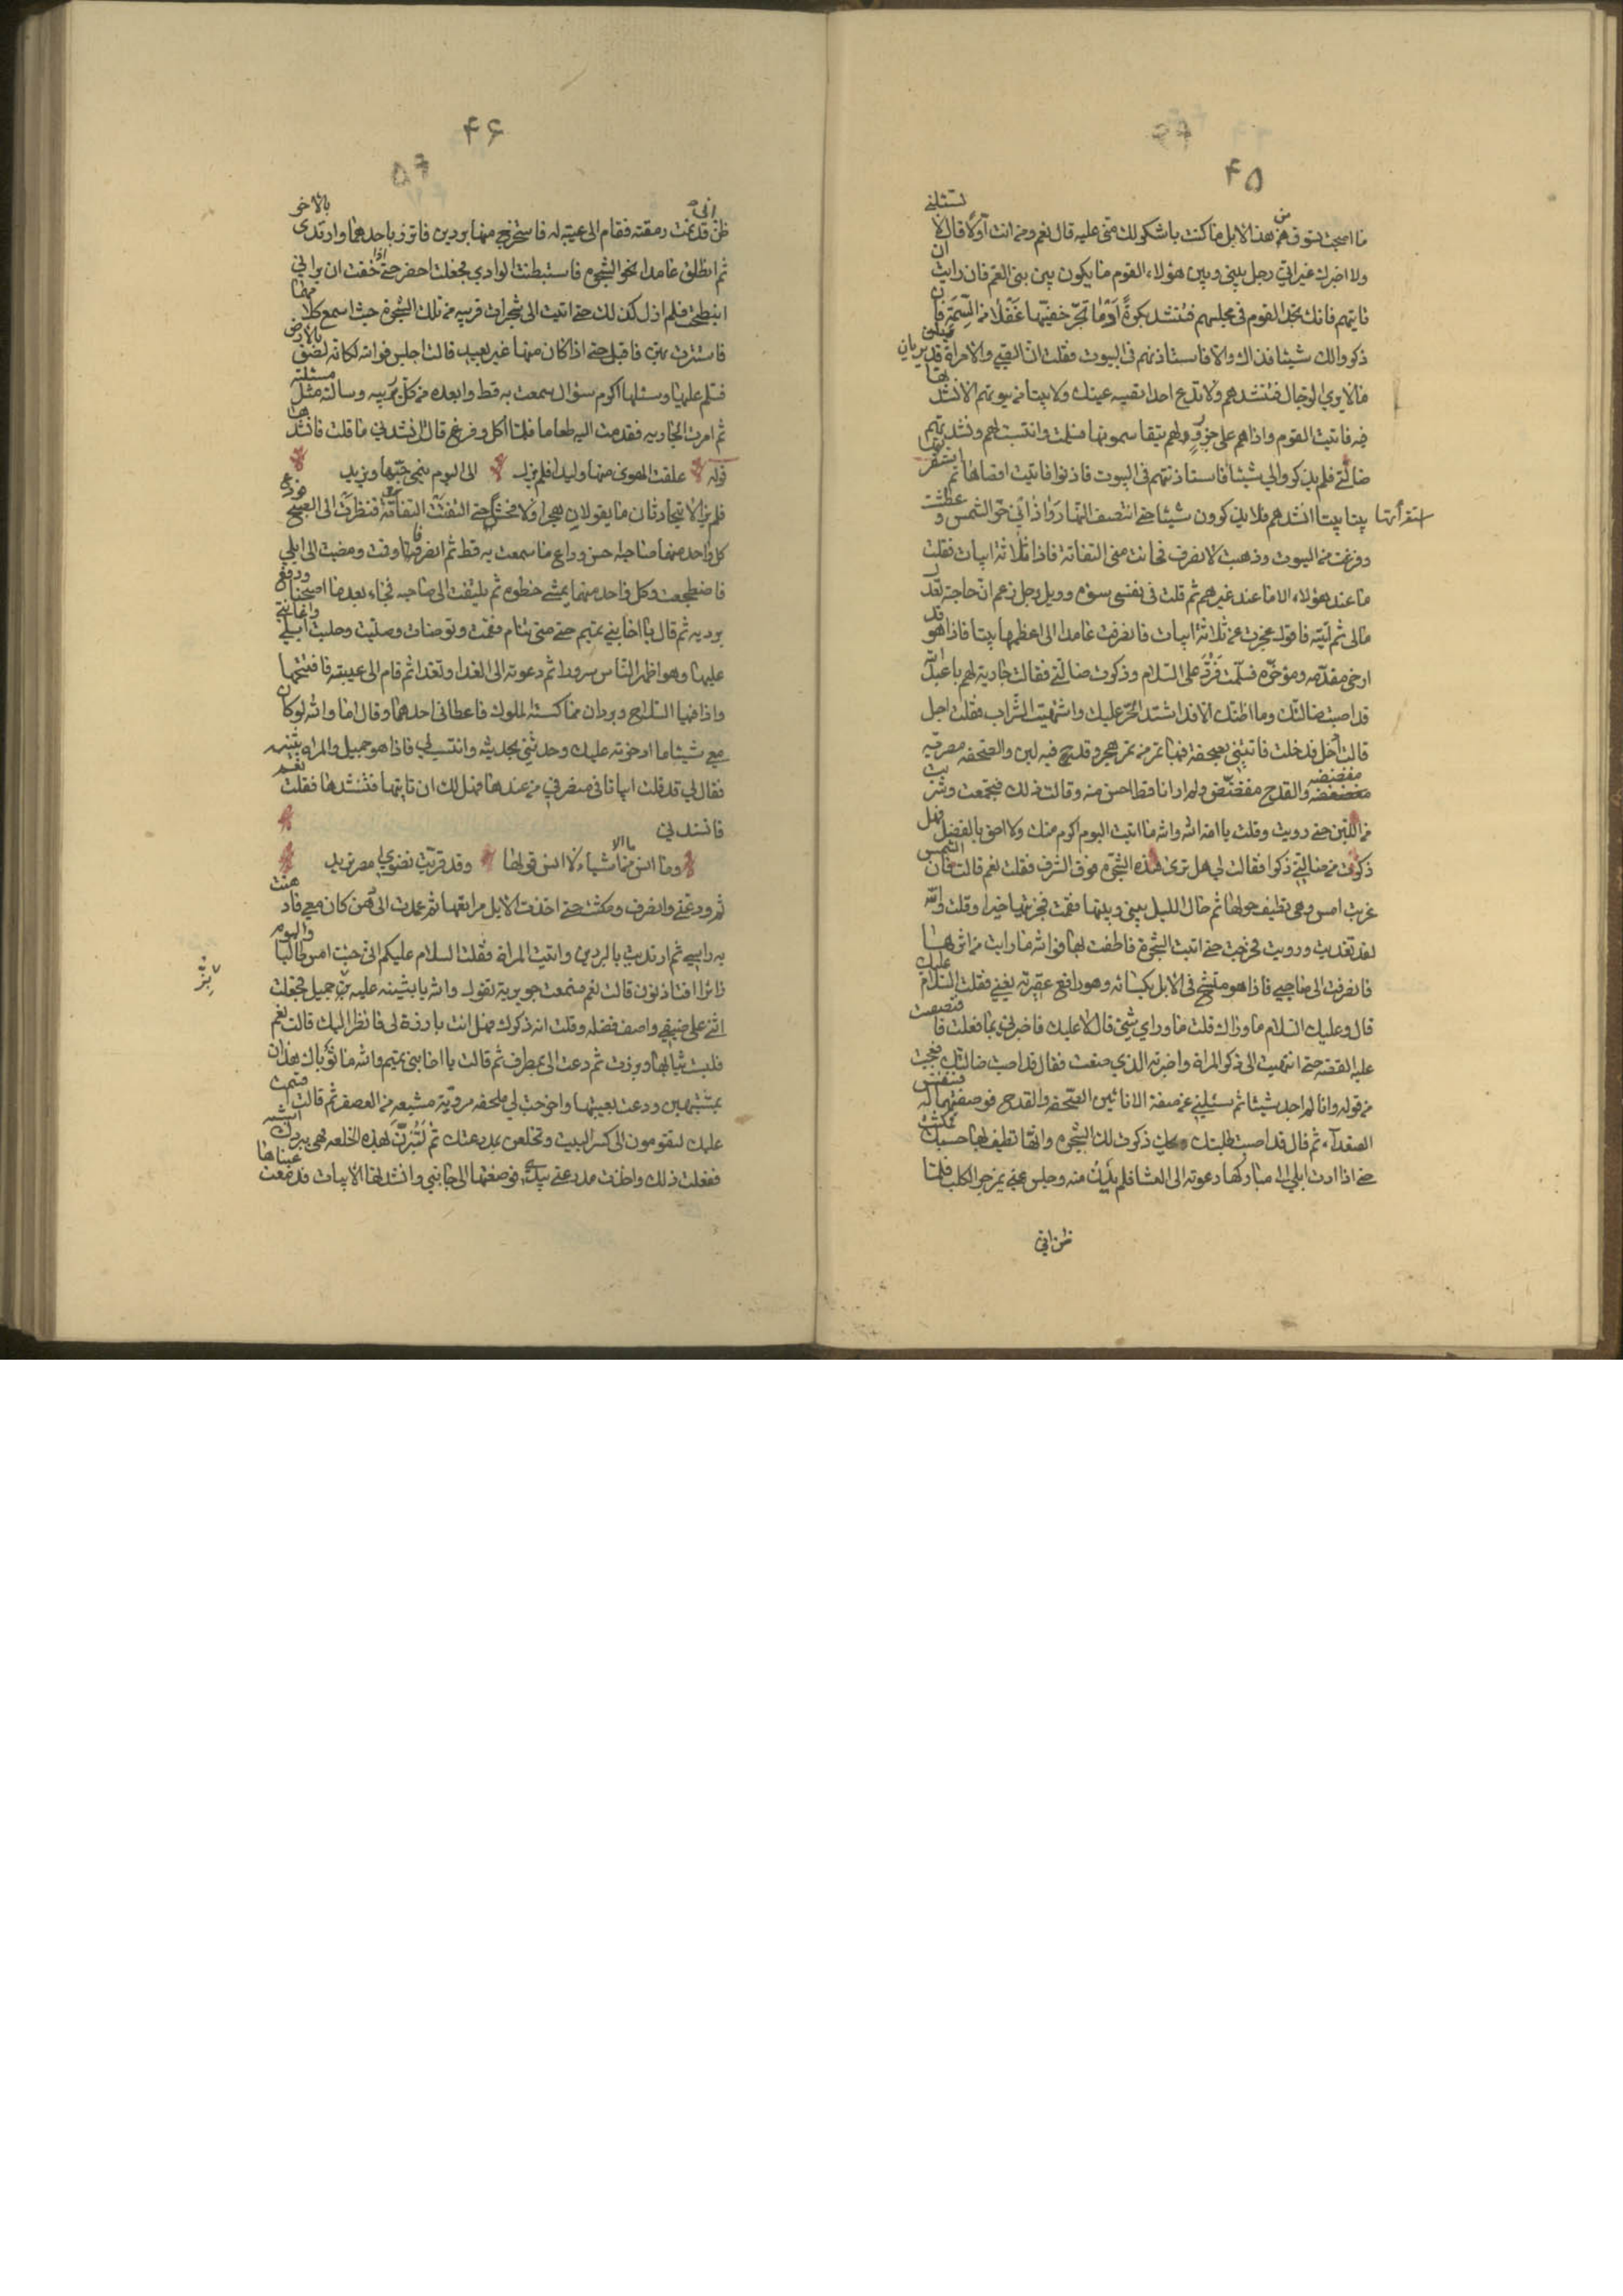 ۴۵
ما اصبحت تسوق من هذا الابل ما كنت باشكو لك منى عليه قال نعم ومن انت اولا قال لا تسئلنى
ولا اخبرك غير انى رجل بينى وبين هؤلاء القوم ما يكون بين بنى العم فان رايت ان
تاتيهم فانك تجد القوم فى مجلسهم فتنشد بكرة ادما تجر خفيها غفلا من السمة فان
ذكروا لك شيئا فذاك والا فاستاذنهم فى البيوت فقلت ان الصبى والامراة قد يريان
ما لا يرى الرجال فتنشدهم ولا تدع احدا تصيبه عينك ولا بيتا من بيوتهم الا نشدتها
فيه فاتيت القوم واذا هم على جزور لهم يتقاسمونها فسلمت وانتسبت لهم ونشدتهم
ضالتى فلم يذكروا لى شيئا فاستاذنتهم فى البيوت فاذنوا فاتيت اقصاها ثم
استقرأتها بيتا بيتا انشدهم فلا يذكرون شيئا حتى انتصف النهار واذانى حر الشمس وعطشت
وفرغت من البيوت وذهبت لانصرف فحانت منى التفاتة فاذا ثلاثة ابيات فقلت
ما عند هؤلاء الا ما عند غيرهم ثم قلت فى نفسى سوءة وويل رجل زعم ان حاجته تعدل
مالى ثم اتيته فاقول عجزت عن ثلاثة ابيات فانصرفت عامدا الى اعظمها بيتا فاذا هو قد
ارخى مقدمه ومؤخره فسلمت فرد على السلام وذكرت ضالتى فقالت جارية لهم يا عبد الله
قد اصبت ضالتك وما اظنك الا قد اشتد الحر عليك واشتهيت الشراب فقلت اجل
قالت ادخل فدخلت فاتتنى بصحفة فيها تمر من تمر هجر وقدح فيه لبن والصحفة مصرية
مفضضة والقدح مفضض ولم ار اناء قط احسن منه وقالت ذلك فتجمعت وشربت
من اللبن حتى رويت وقلت يا امة الله والله ما اتيت اليوم اكرم منك ولا احق بالفضل فهل
ذكرت من ضالتى ذكرا فقالت لى هل ترى هذه الشجرة فوق الشرف فقلت نعم قالت فان الشمس
غربت امس وهى تطيف حولها ثم حال الليل بينى وبينها فقمت فجزيتها خيرا وقلت والله
لقد تغديت ورويت فخرجت حتى اتيت الشجرة فاطفت بها فوالله ما رايت من اثر لها
فانصرفت الى صاحبى فاذا هو متشح فى الابل بكسائه وهو رافع عقيرته يغنى فقلت السلام عليك
قال وعليك السلام ما وراءك قلت ما وراى شئ قال لا عليك فاخبرنى بما فعلت فاقتصصت
عليه القصة حتى انتهيت الى ذكر المراة واخبرته الذى صنعت فقال قد اصبت ضالتك فعجبت
من قوله وانا لم اجد شيئا ثم سئلنى عن صفة الانائين الصحفة والقدح فوصفتهما له فتنفس
الصعداء ثم قال قد اصبت طلبتك ويحك ذكرت لك الشجرة وانها تطيف بها حسبك فمكثت
حتى اذا اوت ابلى الى مباركها دعوته الى العشا فلم يدن منه وجلس عنى بمزجر الكلب فلما
ظن انى
۴۶
ظن انى قد نمت رمقته فقام الى عيبة له فاستخرج منها بردين فاتزر باحدهما وارتدى بالاخر
ثم انطلق عامدا نحو الشجرة فاستبطنت الوادى فجعلت احضر حتى اذا خفت ان يرانى
انبطحت فلم ازل كذلك حتى اتيت الى شجرات قريبة من تلك الشجرة حيث اسمع كلامهما
فاستترت بهن فاقبل حتى اذا كان منها غير بعيد قالت اجلس فوالله لكانه لصق بالارض
فسلم عليها وسئلها اكرم سؤال سمعت به قط وابعده من كل ريبة وسالته مثل مسئلته
ثم امرت الجارية فقدمت اليه طعاما فلما اكل وفرغ قالت انشدنى ما قلت فانشدها
قوله علقت الهوى منها وليدا فلم يزل الى اليوم ينمى حبها ويزيد
فلم يزالا يتحادثان ما يقولان هجرا ولا فحشا حتى التفتت التفاتة فنظرت الى الصبح فودع
كل واحد منهما صاحبه احسن وداع ما سمعت به قط ثم انصرفا وقمت ومضيت الى ابلى
فاضطجعت وكل واحد منهما يمشى خطوة ثم يلتفت الى صاحبه فجاء بعد ما اصبحنا ودفع
برديه ثم قال يا اخا بنى تميم حتى متى تنام فقمت وتوضات وصليت وحلبت ابلى واعاننى
عليها وهو اظهر الناس سرورا ثم دعوته الى الغدا وتغدا ثم قام الى عيبته فافتتحها
واذا فيها السلاح وبردان مما كسته الملوك فاعطانى احدهما وقال اما والله لو كان
معى شيئا ما ادخرته عليك وحدثنى بحديثه وانتسب لى فاذا هو جميل والمراه بثينه
فقال لى قد قلت ابياتا فى منصرفى من عندها فهل لك ان تاتيها فتنشدها فقلت نعم
فانشدنى
وما انس من الاشياء لا انس قولها وقد قربت نضوى امصر تريد
ثم ودعنى وانصرف ومكثت حتى اخذت الابل مراتعها ثم عمدت الى دهن كان معى فادهنت
به راسى ثم ارتديت بالبردين واتيت المراة فقلت السلام عليكم انى جئت امس طالبا واليوم
زائرا افتاذنون قالت نعم فسمعت جويرية تقول والله يا بثينه عليه برد جميل فجعلت
اثنى على ضيفى واصف فضله وقلت انه ذكرك فهل انت بارزة لى فانظر اليك قالت نعم
فلبست ثيابها وبرزت ثم دعت الى بمطرف ثم قالت يا اخا بنى تميم والله ما ثوباك هذان
بمشتبهين ودعت بعيبتها واخرجت لى ملحفه مروية مشبعه من العصفر ثم قالت اقسمت
عليك لتقومن الى كسر البيت وتخلعن مدرعتك ثم لتتزرن بهذه الخلعه فهى ببردك اشبه
ففعلت ذلك واخذت مدرعتى بيدى فوضعتها الى جانبى وانشدتها الابيات فدمعت عيناها